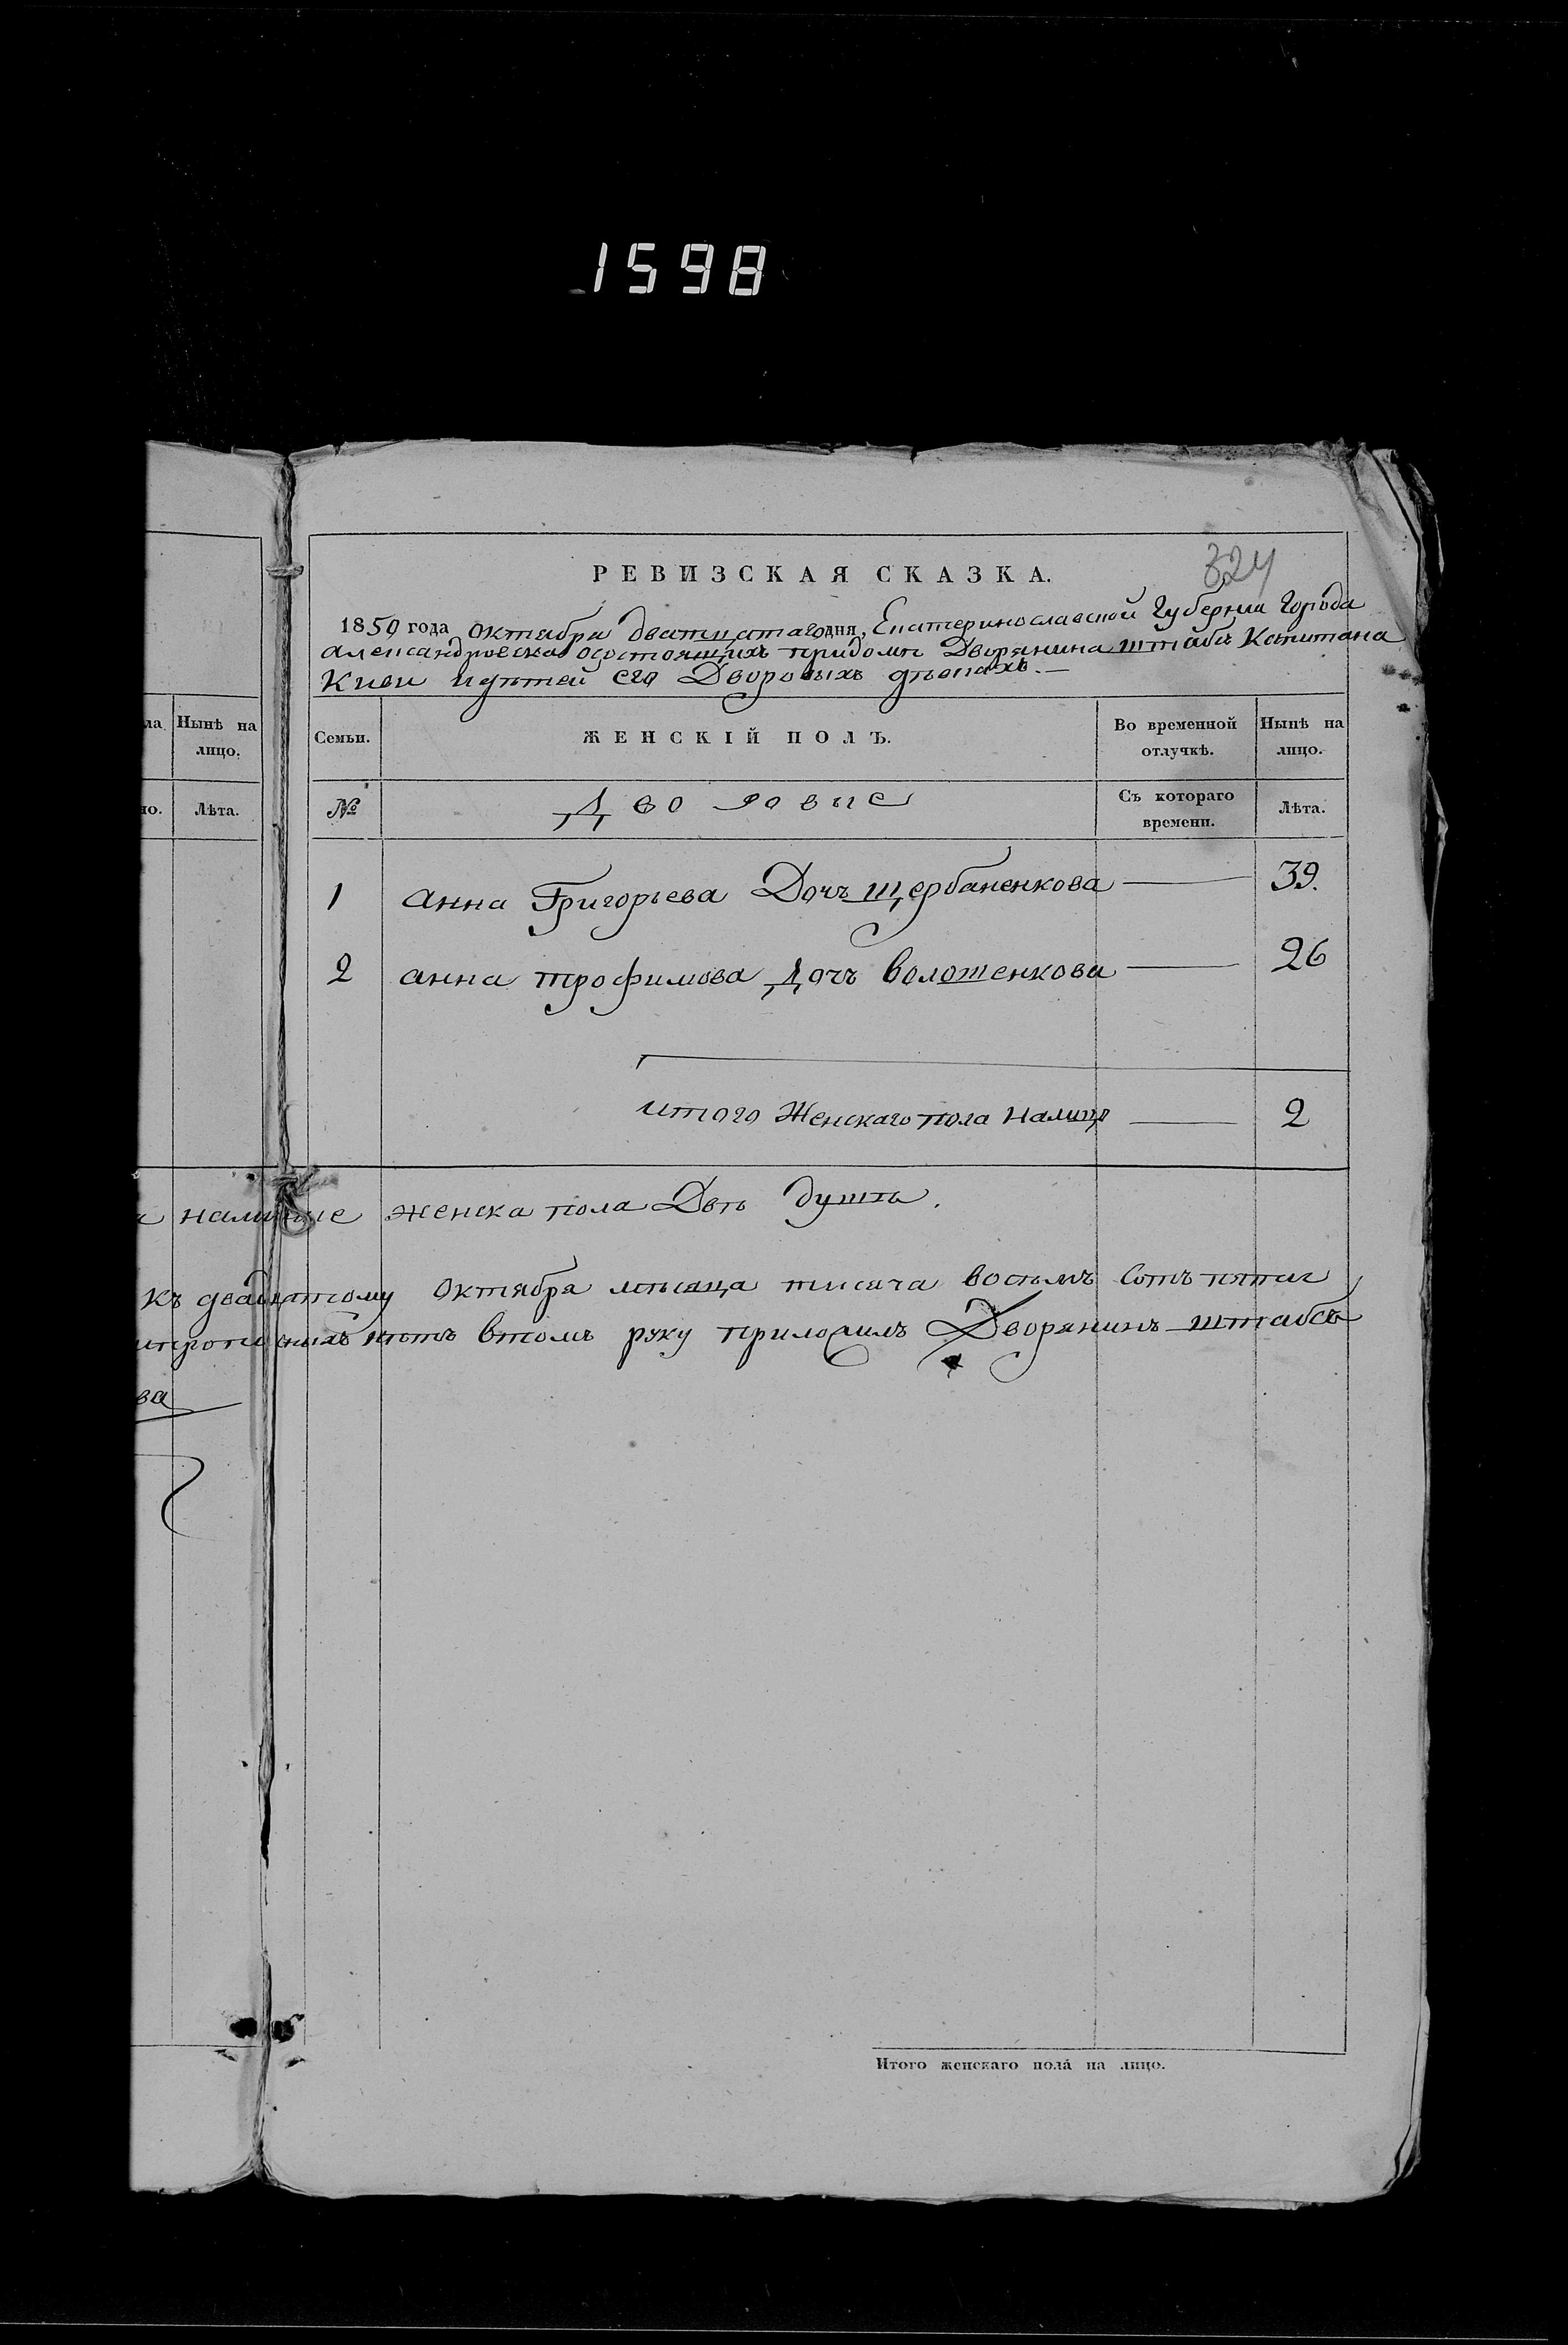 1598
324
РЕВИЗСКАЯ СКАЗКА.
1850 года Октября дватцатаго дня, Екатеринославской Губернии Города
Александровска осостоящихъ придомѣ Дворянина штабсъ Капитана
Киви идѣтей его Дворовыхъ дѣвкахъ.—
ла
Нынѣ на лицо.
Семьи.
ЖЕНСКІЙ ПОЛЪ.
Во временной отлучкѣ.
Нынѣ на лицо.
но.
Лѣта.
№
Дворовые
Съ котораго времени.
Лѣта.
1 Анна Григорьева Дочъ щербаненкова — 39.
2 анна трофимова Дочъ волошенкова — 26
итого Женскаго пола Налицо — 2
а налицые женска пола Двѣ душѣ.
Къ двадцатому Октября мѣсяца тисяча восемъ Сотъ пятьг
нѣтъ втомъ руку приложилъ Дворянинъ штабсъ
ва
Итого женскаго пола на лицо.